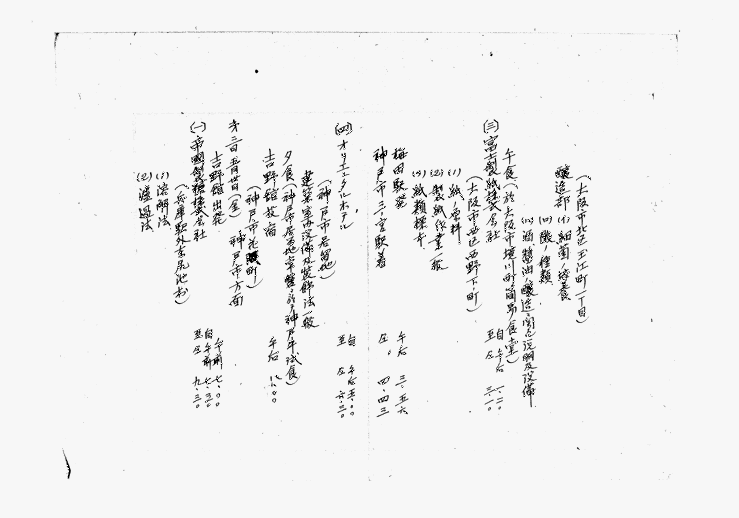 （大阪市北区玉江町一丁目）
醸造部 (イ) 細菌ノ培養
(ロ) 酸ノ種類
(ハ) 酒醤油ノ醸造ニ関スル説明及設備
午食（於大阪市境川町簡易食堂）
(三) 富士製紙株式会社 自午后 一、二〇 至 仝 三、一〇
（大阪市西区西野下ノ町）
(1) 紙ノ原料
(2) 製紙作業一般
(3) 紙類標本
梅田駅発 午后 三、五六
神戸市三ノ宮駅着 仝 四、四三
(四) オリエンタルホテル 自 午后五、〇〇 至 仝 六、三〇
（神戸市居留地）
建築室内設備及装飾法一般
夕食（神戸市居留地 神戸牛試食）
吉野館投宿 午后 八、〇〇
（神戸市花隈町）
第三日 五月廿日（金） 神戸市方面
吉野館出発 午前七、〇〇
(一) 帝國製糖株式会社 自午前 七、三〇 至 仝 九、三〇
（兵庫駅外東尻池村）
(1) 溶解法
(2) 濾過法